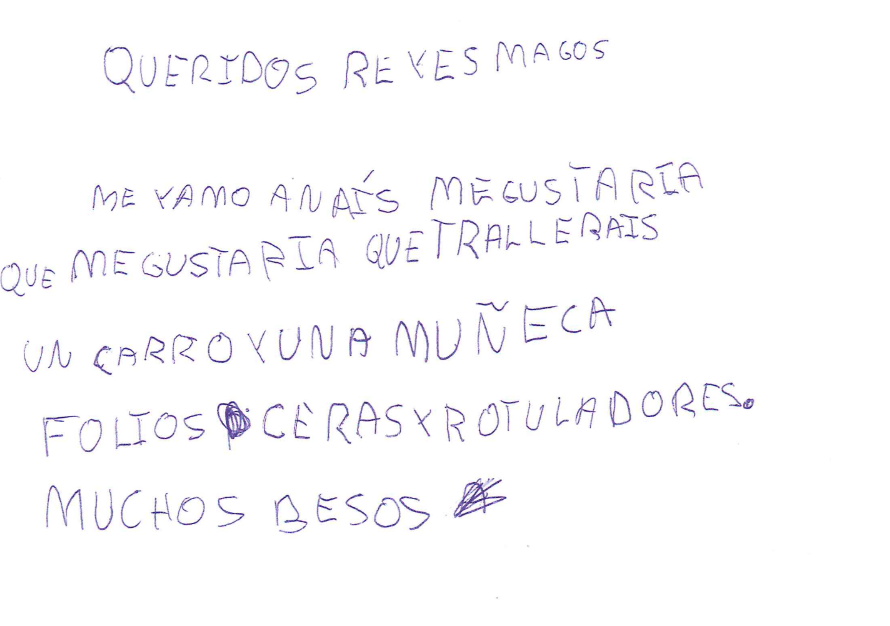 QUERIDOS REYES MAGOS
ME YAMO ANAÍS MEGUSTARIA
QUE MEGUSTARIA QUETRALLERAIS
UN CARROYUNA MUÑECA
FOLIOS CERASYROTULADORES.
MUCHOS BESOS